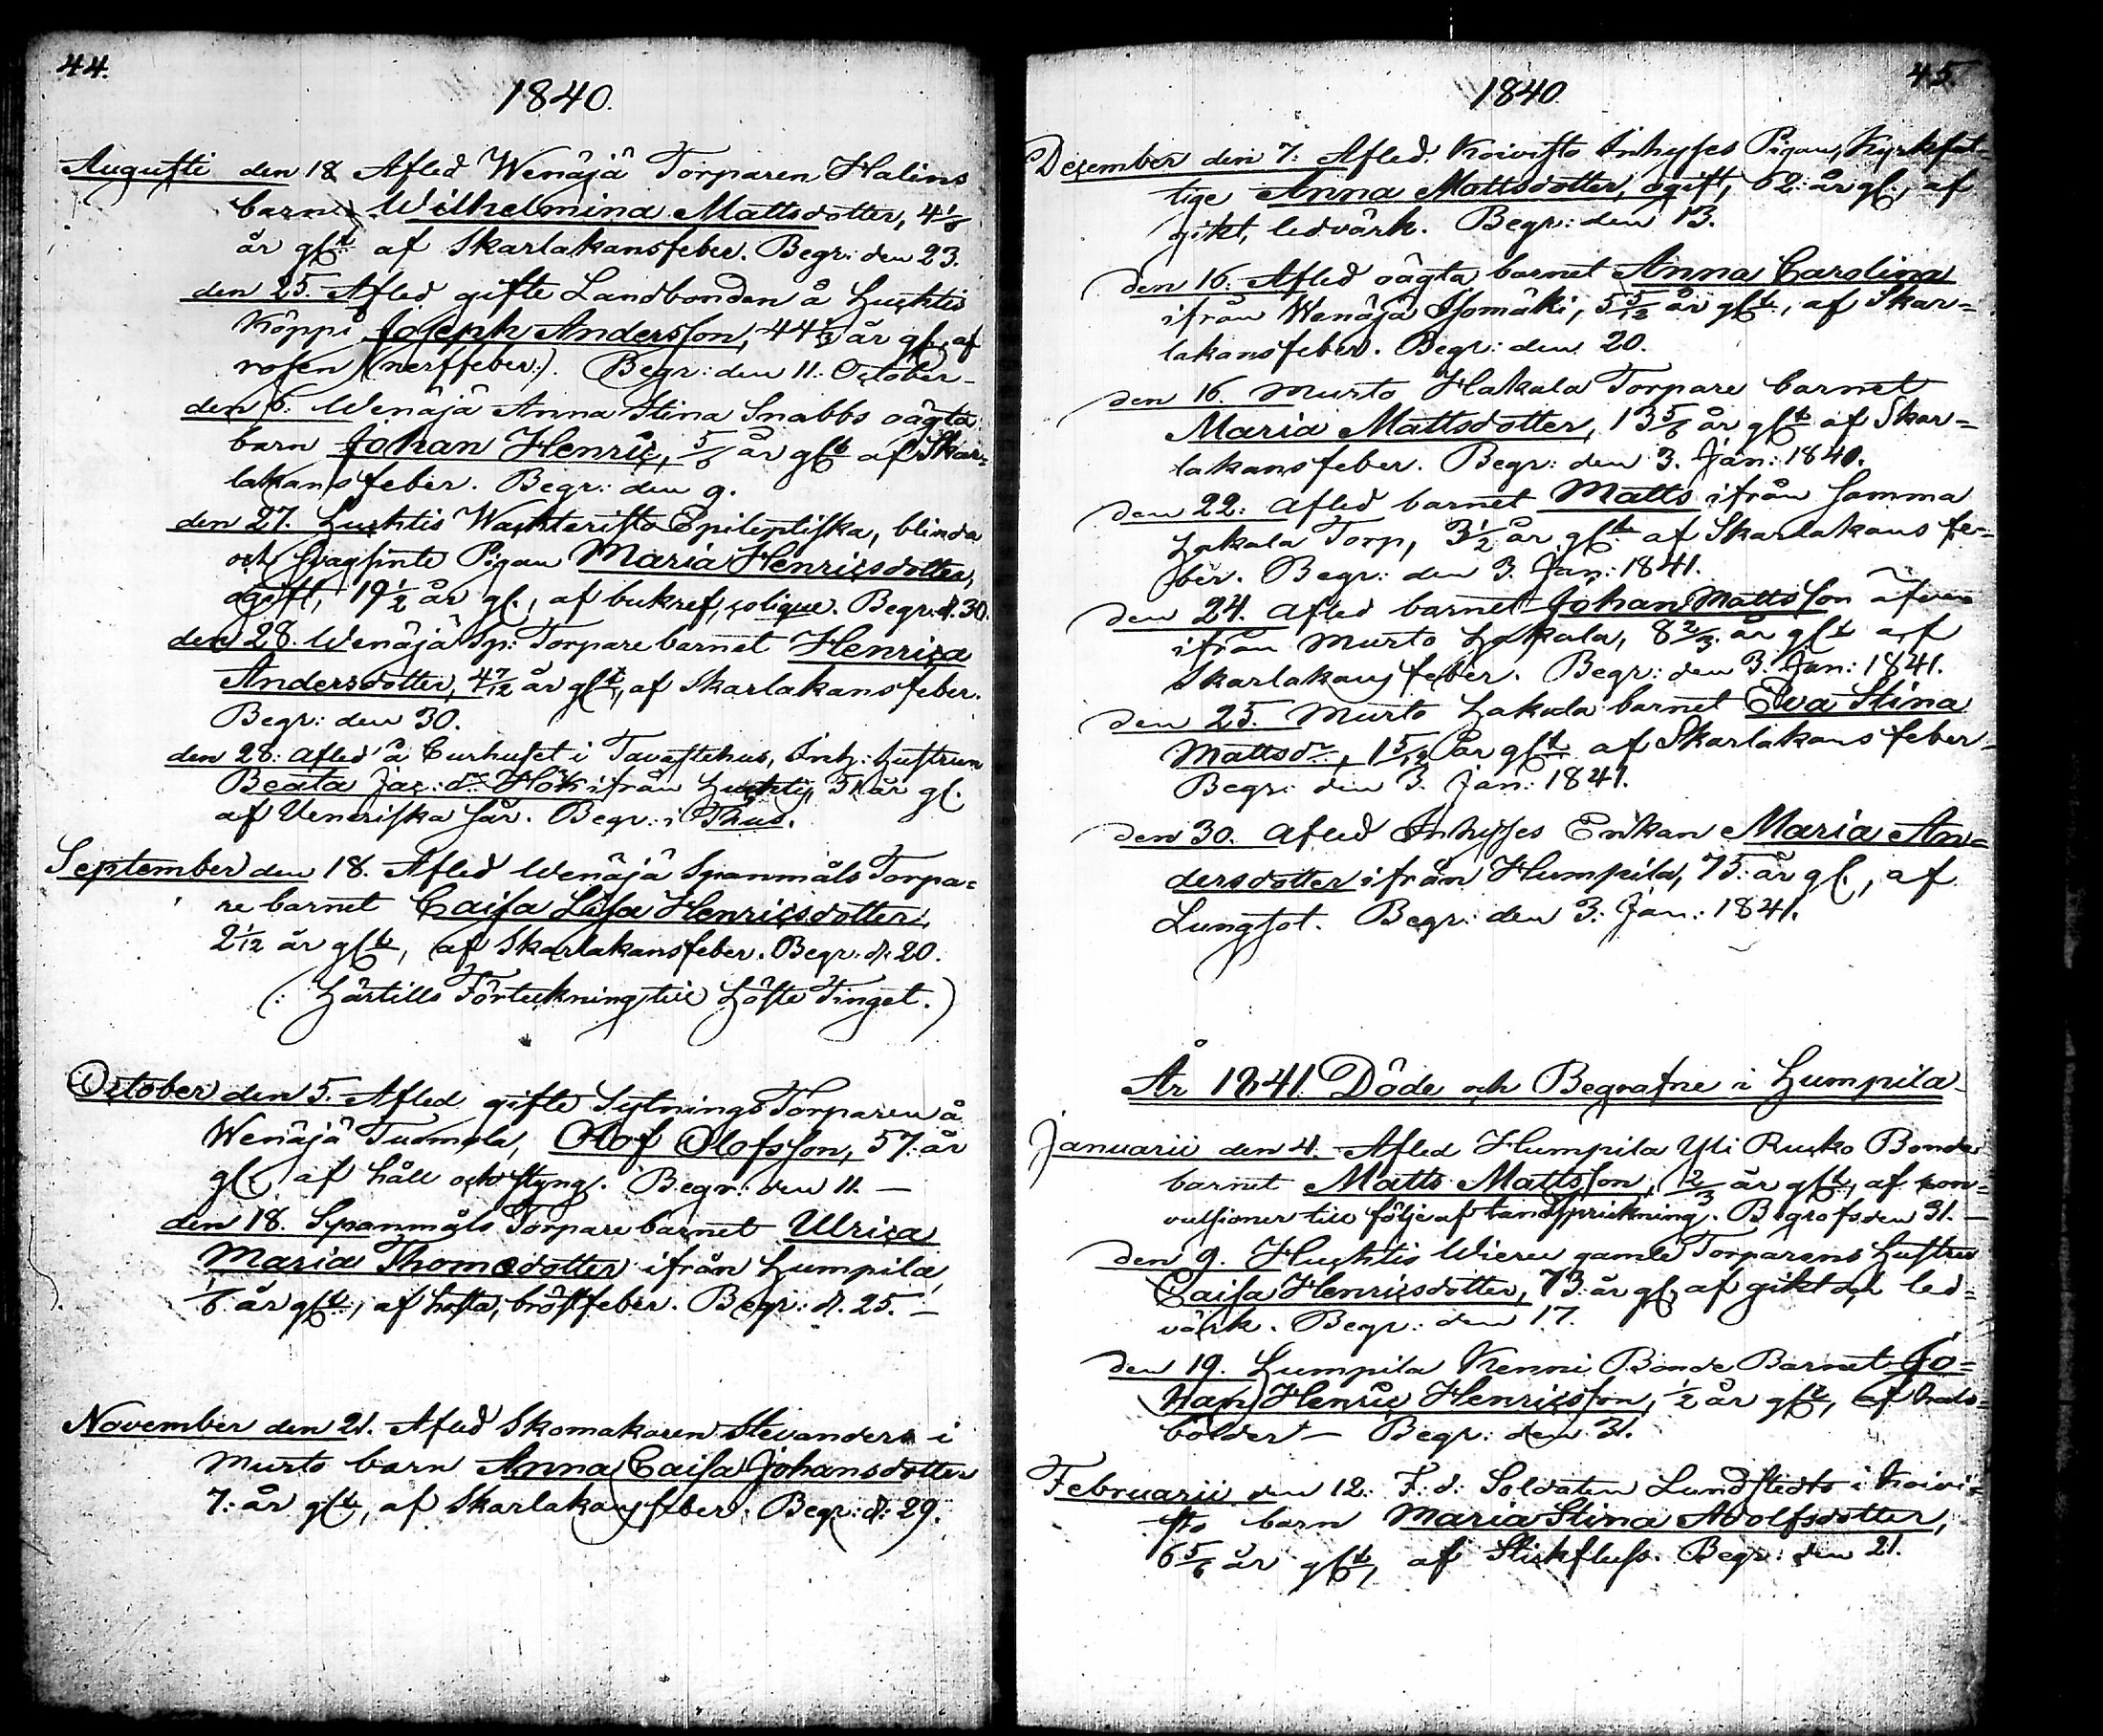 44.
1840.
Augusti den 18 Afled Wenäjä Torparen Halins
barn Wilhelmina Mattsdotter, 4 1/6
år glt af Skarlakansfeber. Begr: den 23.
den 25. Afled gifte Landbonden å Huhtis
Köppi Joseph Andersson, 44 1/3 år gl, af
rosen (nerffeber:). Begr: den 11. October
den 6. Wenäjä Anna Stina Snabbs oägta
barn Johan Henric, 5/6 år glt af Skar=
lakansfeber. Begr: den 9.
den 27. Huhtis Wachteristo Epileptiska, blinda
och svagsinte Pigan Maria Henricsdotter,
ogift, 19 1/2 år gl., af bukref, colique. Begr. d. 30.
den 28. Wenäjä Sp: Torpare barnet Henrica
Andersdotter, 4 7/12 år glt, af Skarlakansfeber.
Begr: den 30.
den 28: Afled å Curhuset i Tavastehus, Inh: Hustrun
Beata Jac: dr Hök ifrån Huhtis, 31 år gl.
af Veneriska sår. Begr: i Thus.
September den 18. Afled Wenäjä Spanmåls Torpa=
re barnet Caisa Lisa Henricsdotter,
2 1/12 år glt, af Skarlakansfeber. Begr. d. 20.
(: Härtills Förteckning till Höste Tinget.)
October den 5. Afled gifte Sytnings Torparen å
Wenäjä Tuomola, Olof Olofsson, 57: år
gl. af håll och styng. Begr: den 11. —
den 18. Spanmåls Torpare barnet Ulrica
Maria Thomedotter ifrån Humpila,
1/6 år glt, af hosta, bröstfeber. Begr: d. 25. —
November den 21. Afled Skomakaren Stevanders i
Murto barn Anna Caisa Johansdotter
7: år glt, af Skarlakansfeber. Begr: d: 29.
45
1840.
December den 7: Afled. Koivisto Inhyses Pigan, Kyrkfat=
tige Anna Mattsdotter, ogift, 62: år gl., af
gikt, ledvärk. Begr: den 13.
den 16. Afled oägta barnet Anna Carolina
ifrån Wenäjä Isomäki, 5 5/12 år glt., af Skar=
lakansfeber. Begr: den 20.
den 16. Murto Hakala Torpare barnet
Maria Mattsdotter, 13 5/6 år glt af Skar=
lakansfeber. Begr: den 3. Jan: 1840.
den 22: Afled barnet Matts ifrån samma
Hakala Torp, 3 1/2 år glt af Skarlakans fe=
ber. Begr: den 3. Jan: 1841.
den 24. Afled barnet Johan Mattsson äfven
ifrån Murto Hakala, 8 2/3 år glt af
Skarlakansfeber. Begr: den 3. Jan: 1841.
den 25. Murto Hakala barnet Eva Stina
Mattsdr, 1 5/12 år glt af Skarlakans feber
Begr: den 3. Jan: 1841.
den 30. Afled Inhyses Enkan Maria An=
dersdotter ifrån Humpila, 75: år gl., af
Lungsot. Begr: den 3: Jan.: 1841.
År 1841 Döde och Begrafne i Humpila
Januarii den 4. Afled Humpila Yli Rusko Bonde
barnet Matts Mattsson, 2/3 år glt, af kon=
vulsioner till följe af tandsprickning. Begrofs den 31. —
den 9. Huhtis Wieru gamle Torparens Hustru
Caisa Henricsdotter, 73: år gl, af gikt och led=
värk. Begr: den 17.
den 19. Humpila Kenni Bonde Barnet Jo=
han Henric Henricsson, 1/2 år glt, af hals=
bölder — Begr: den 31.
Februarii den 12: F: d: Soldaten Lundstedts i Koivi=
sto barn Maria Stina Adolfsdotter,
6 5/6 år glt, af Stickfluss. Begr: den 21.